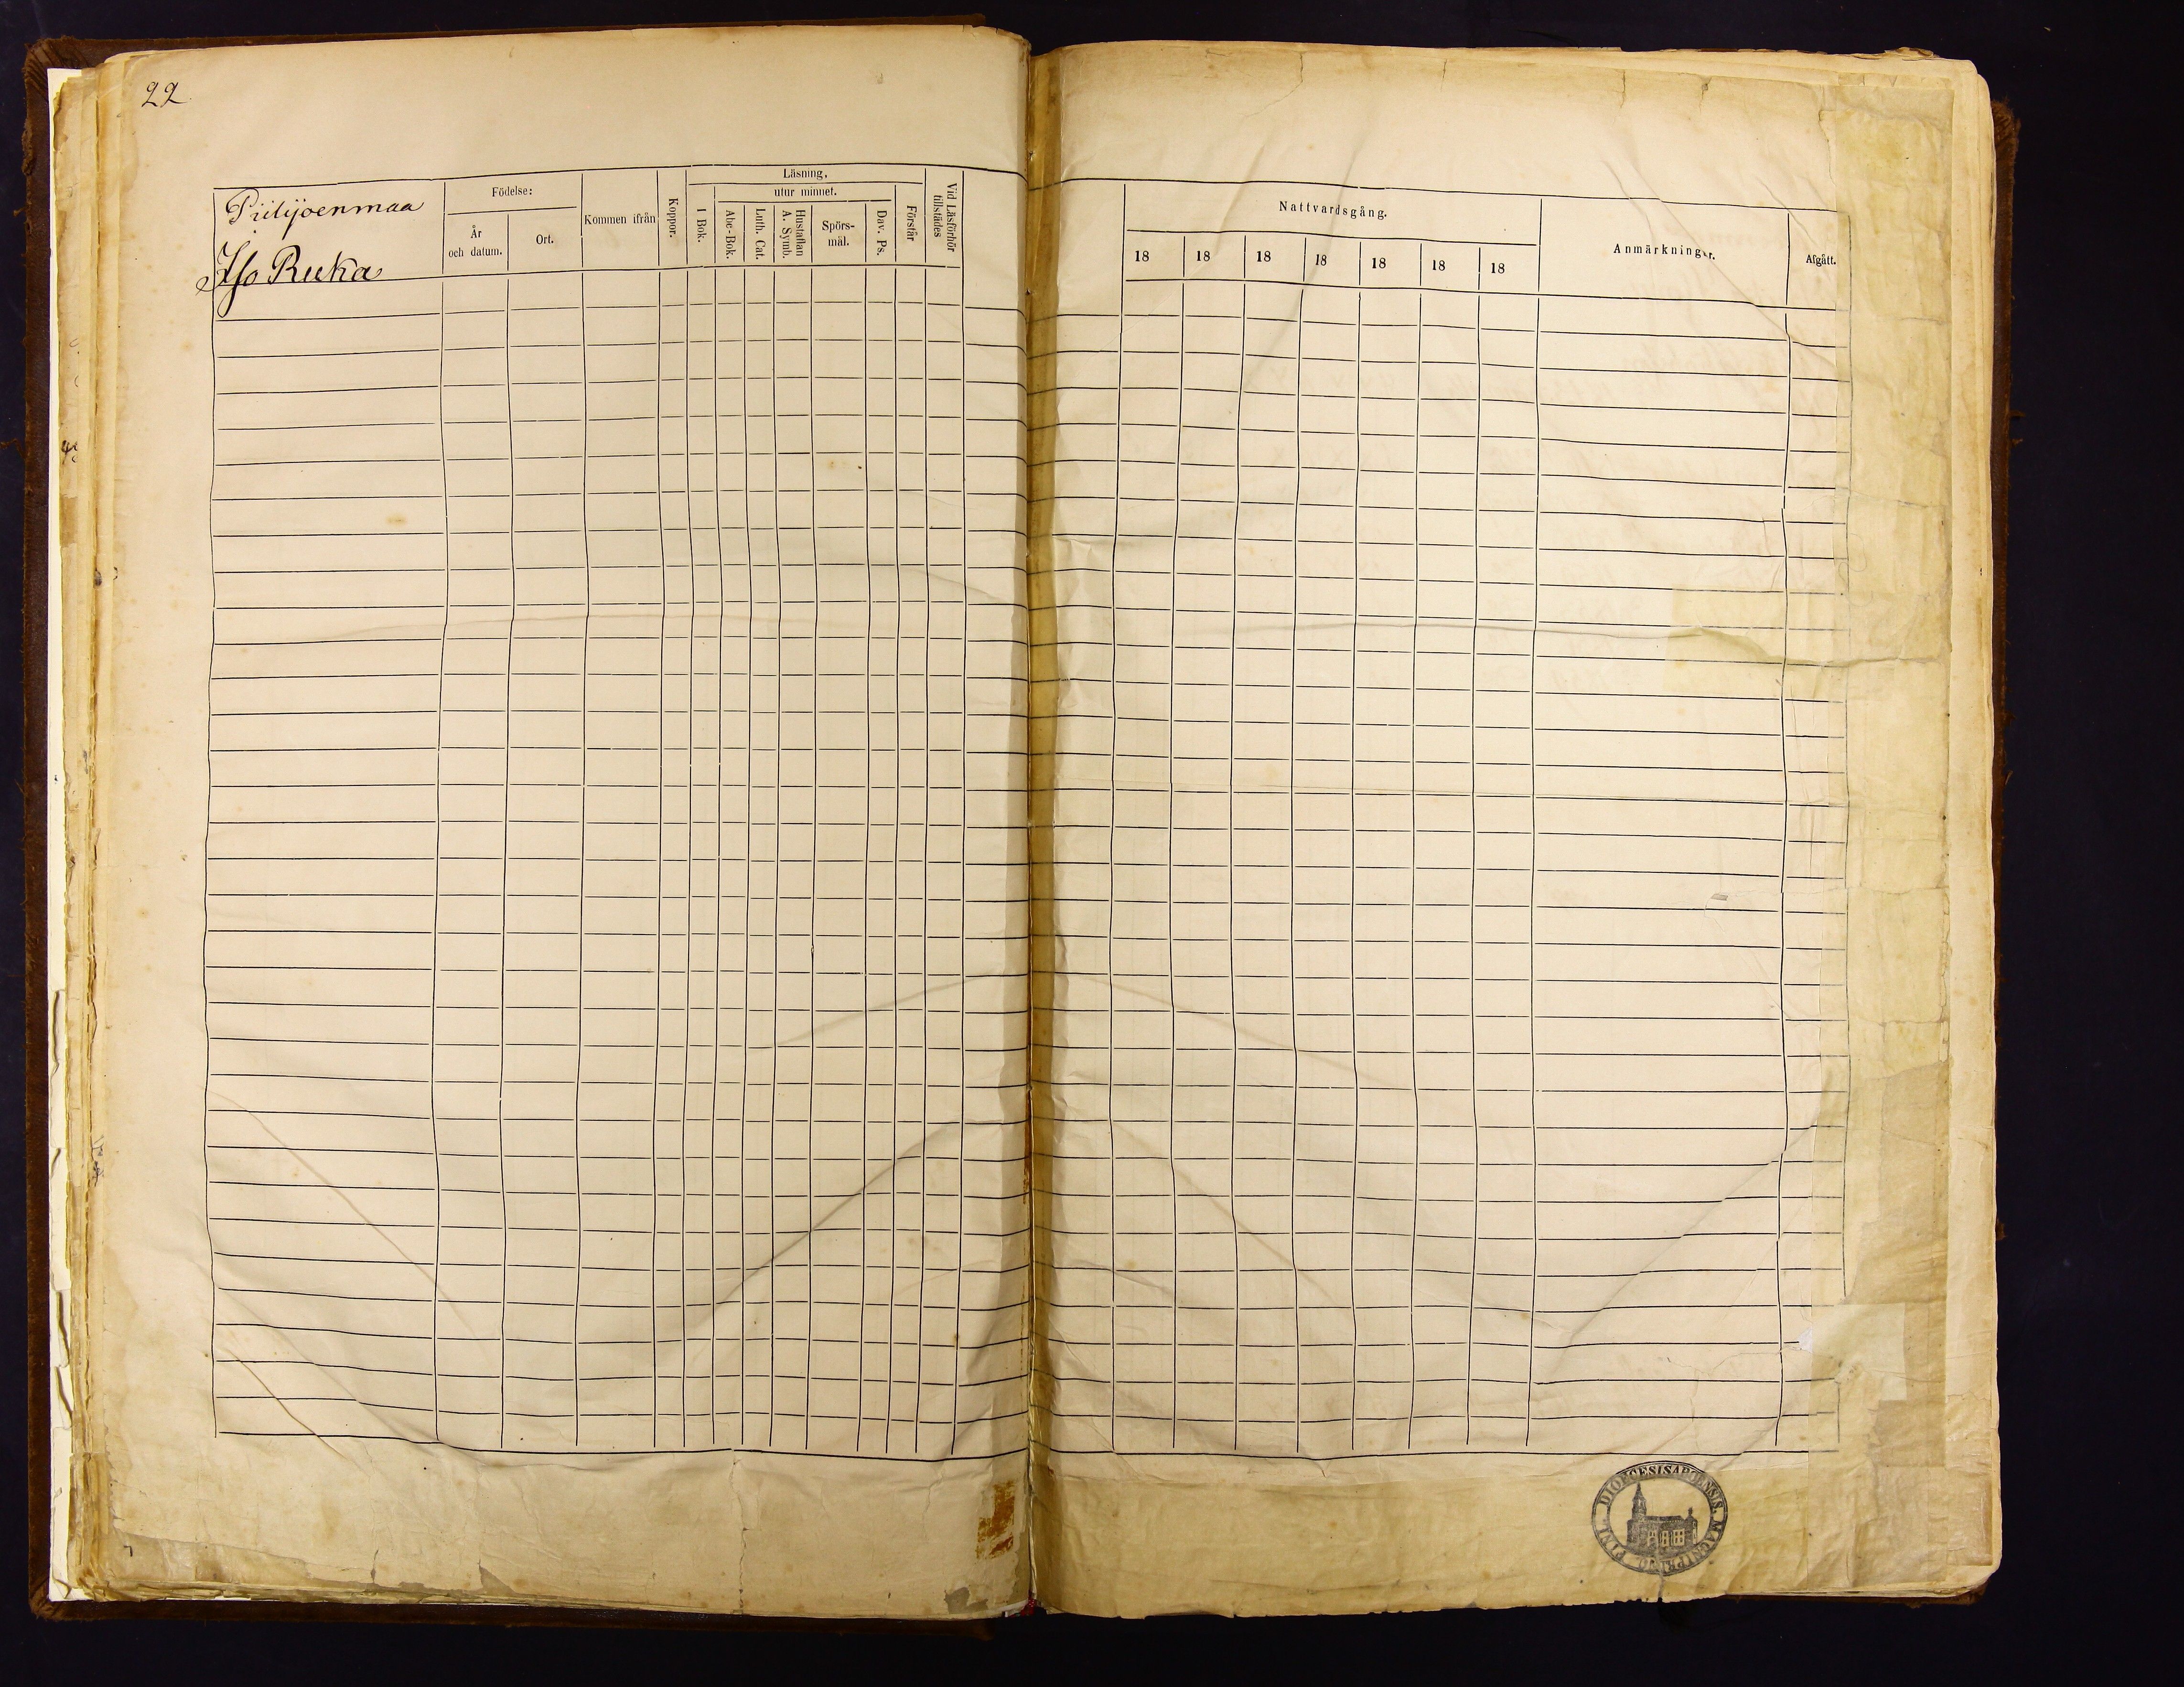 22
Piilijoenmaa
Iso Ruka
Födelse:
År
och datum.
Ort.
Kommen ifrån
Koppor.
Läsning,
I Bok.
utur minnet.
Abc-Bok.
Luth. Cat.
Hustaflan
A. Symb.
Spörs-
mål.
Dav. Ps.
Förstår
Vid Läsförhör
tillstädes
Nattvardsgång.
18 18 18 18 18 18 18
Anmärkningar.
Afgått.
DIOECESIS ABOENSIS. MAGNI PRINC. FINL.